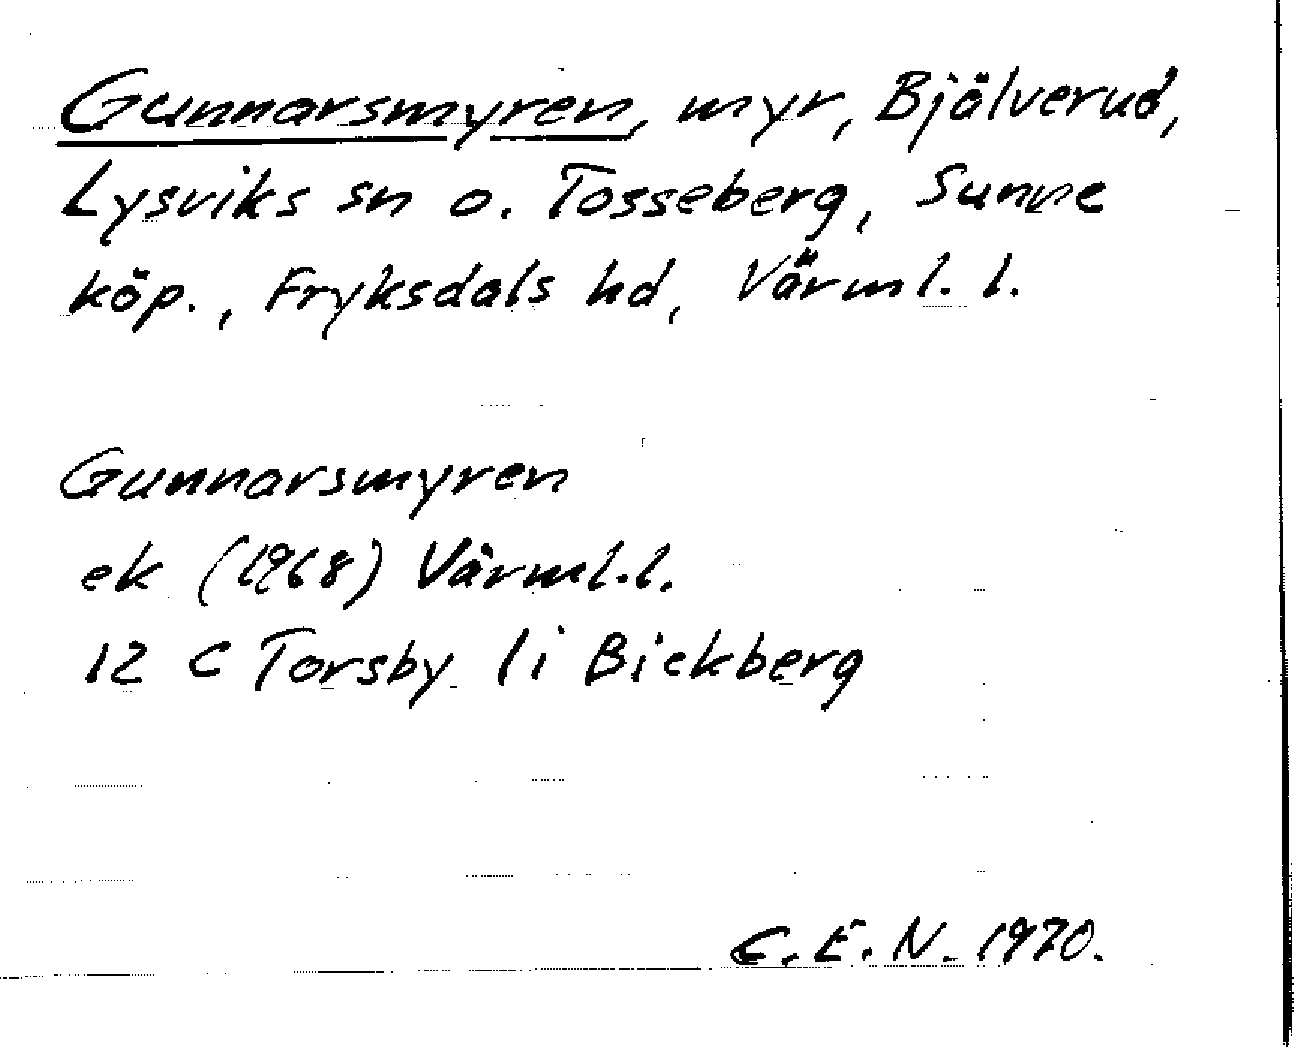 Gunnarsmyren, myr, Bjälverud,
Lysviks sn o. Tosseberg, Sunne
köp., Fryksdals hd, Värml. l.
Gunnarsmyren
ek (1968) Värml.l.
12 C Torsby 1i Bickberg
C.E.N. 1970.